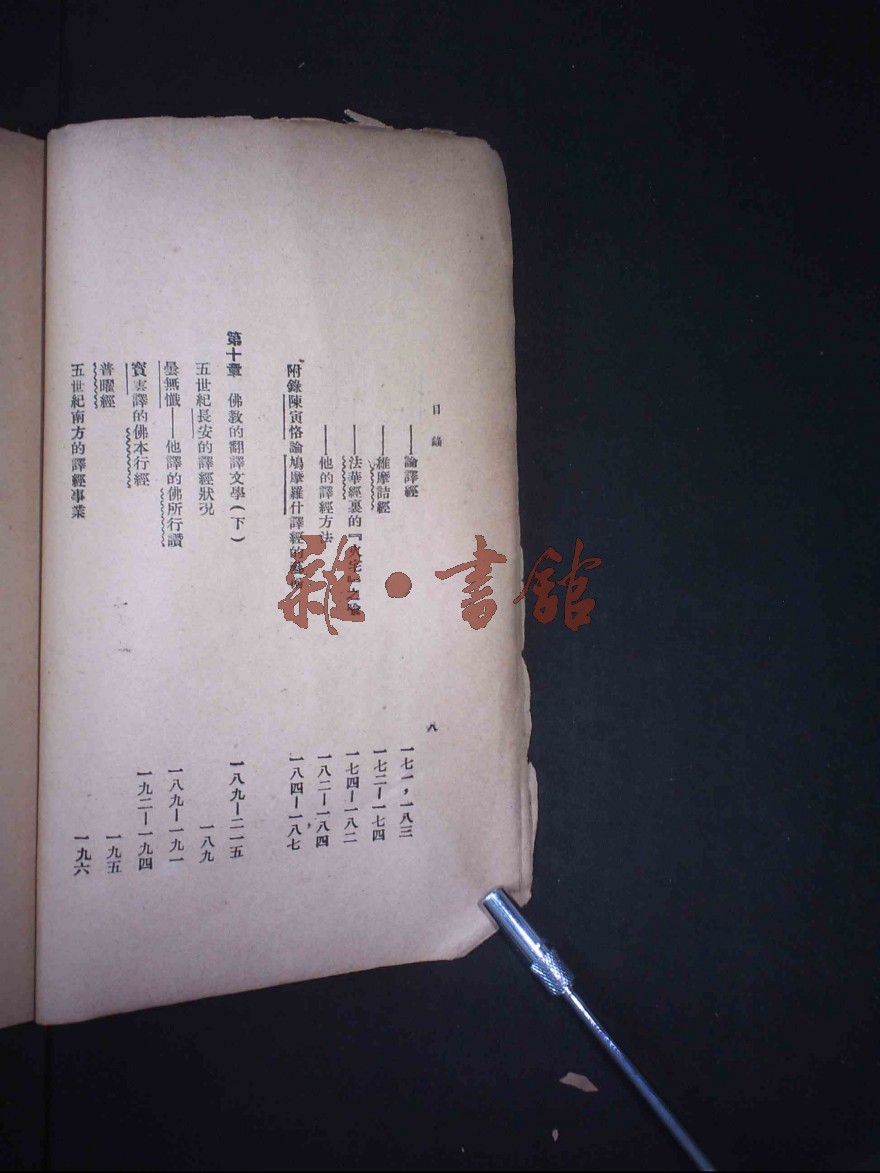 目錄
八
——論譯經 一七一，一八三
——維摩詰經 一七二—一七四
——法華經裏的『火宅』之喻 一七四—一八二
——他的譯經方法 一八二—一八四
附錄陳寅恪論鳩摩羅什譯經的 一八四—一八七
第十章 佛教的翻譯文學(下) 一八九—二一五
五世紀長安的譯經狀況 一八九
曇無懺——他譯的佛所行讚 一八九—一九一
寶雲譯的佛本行經 一九二—一九四
普曜經 一九五
五世紀南方的譯經事業 一九六
雜·書館